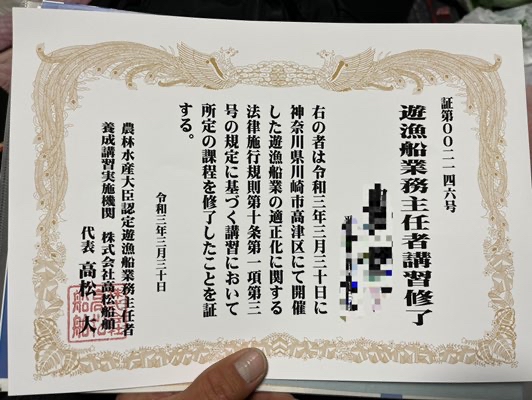 証第〇〇二一四六号
遊漁船業務主任者講習修了
右の者は令和三年三月三十日に
神奈川県川崎市高津区にて開催
した遊漁船業の適正化に関する
法律施行規則第十条第一項第三
号の規定に基づく講習において
所定の課程を修了したことを証
する。
令和三年三月三十日
農林水産大臣認定遊漁船業務主任者
養成講習実施機関 株式会社高松船舶
代表 高松 大